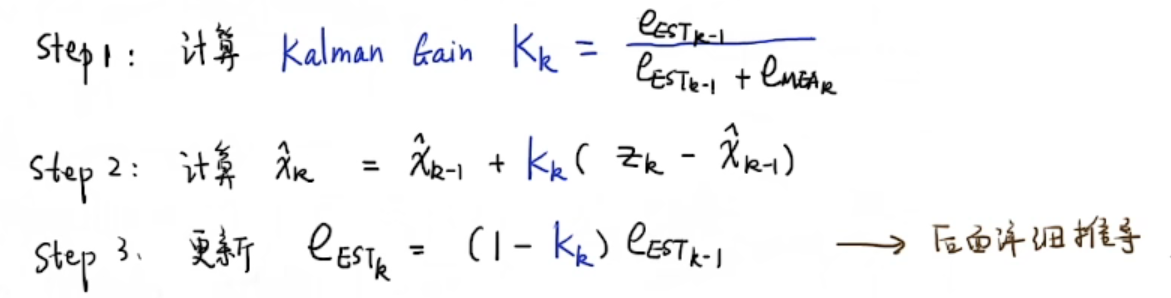 Step1: 计算 Kalman Gain Kₖ = e_ESTₖ₋₁ / (e_ESTₖ₋₁ + e_MEAₖ)
Step 2: 计算 x̂ₖ = x̂ₖ₋₁ + kₖ( zₖ - x̂ₖ₋₁)
Step 3. 更新 e_ESTₖ = (1 - kₖ) e_ESTₖ₋₁ → 后面详细推导